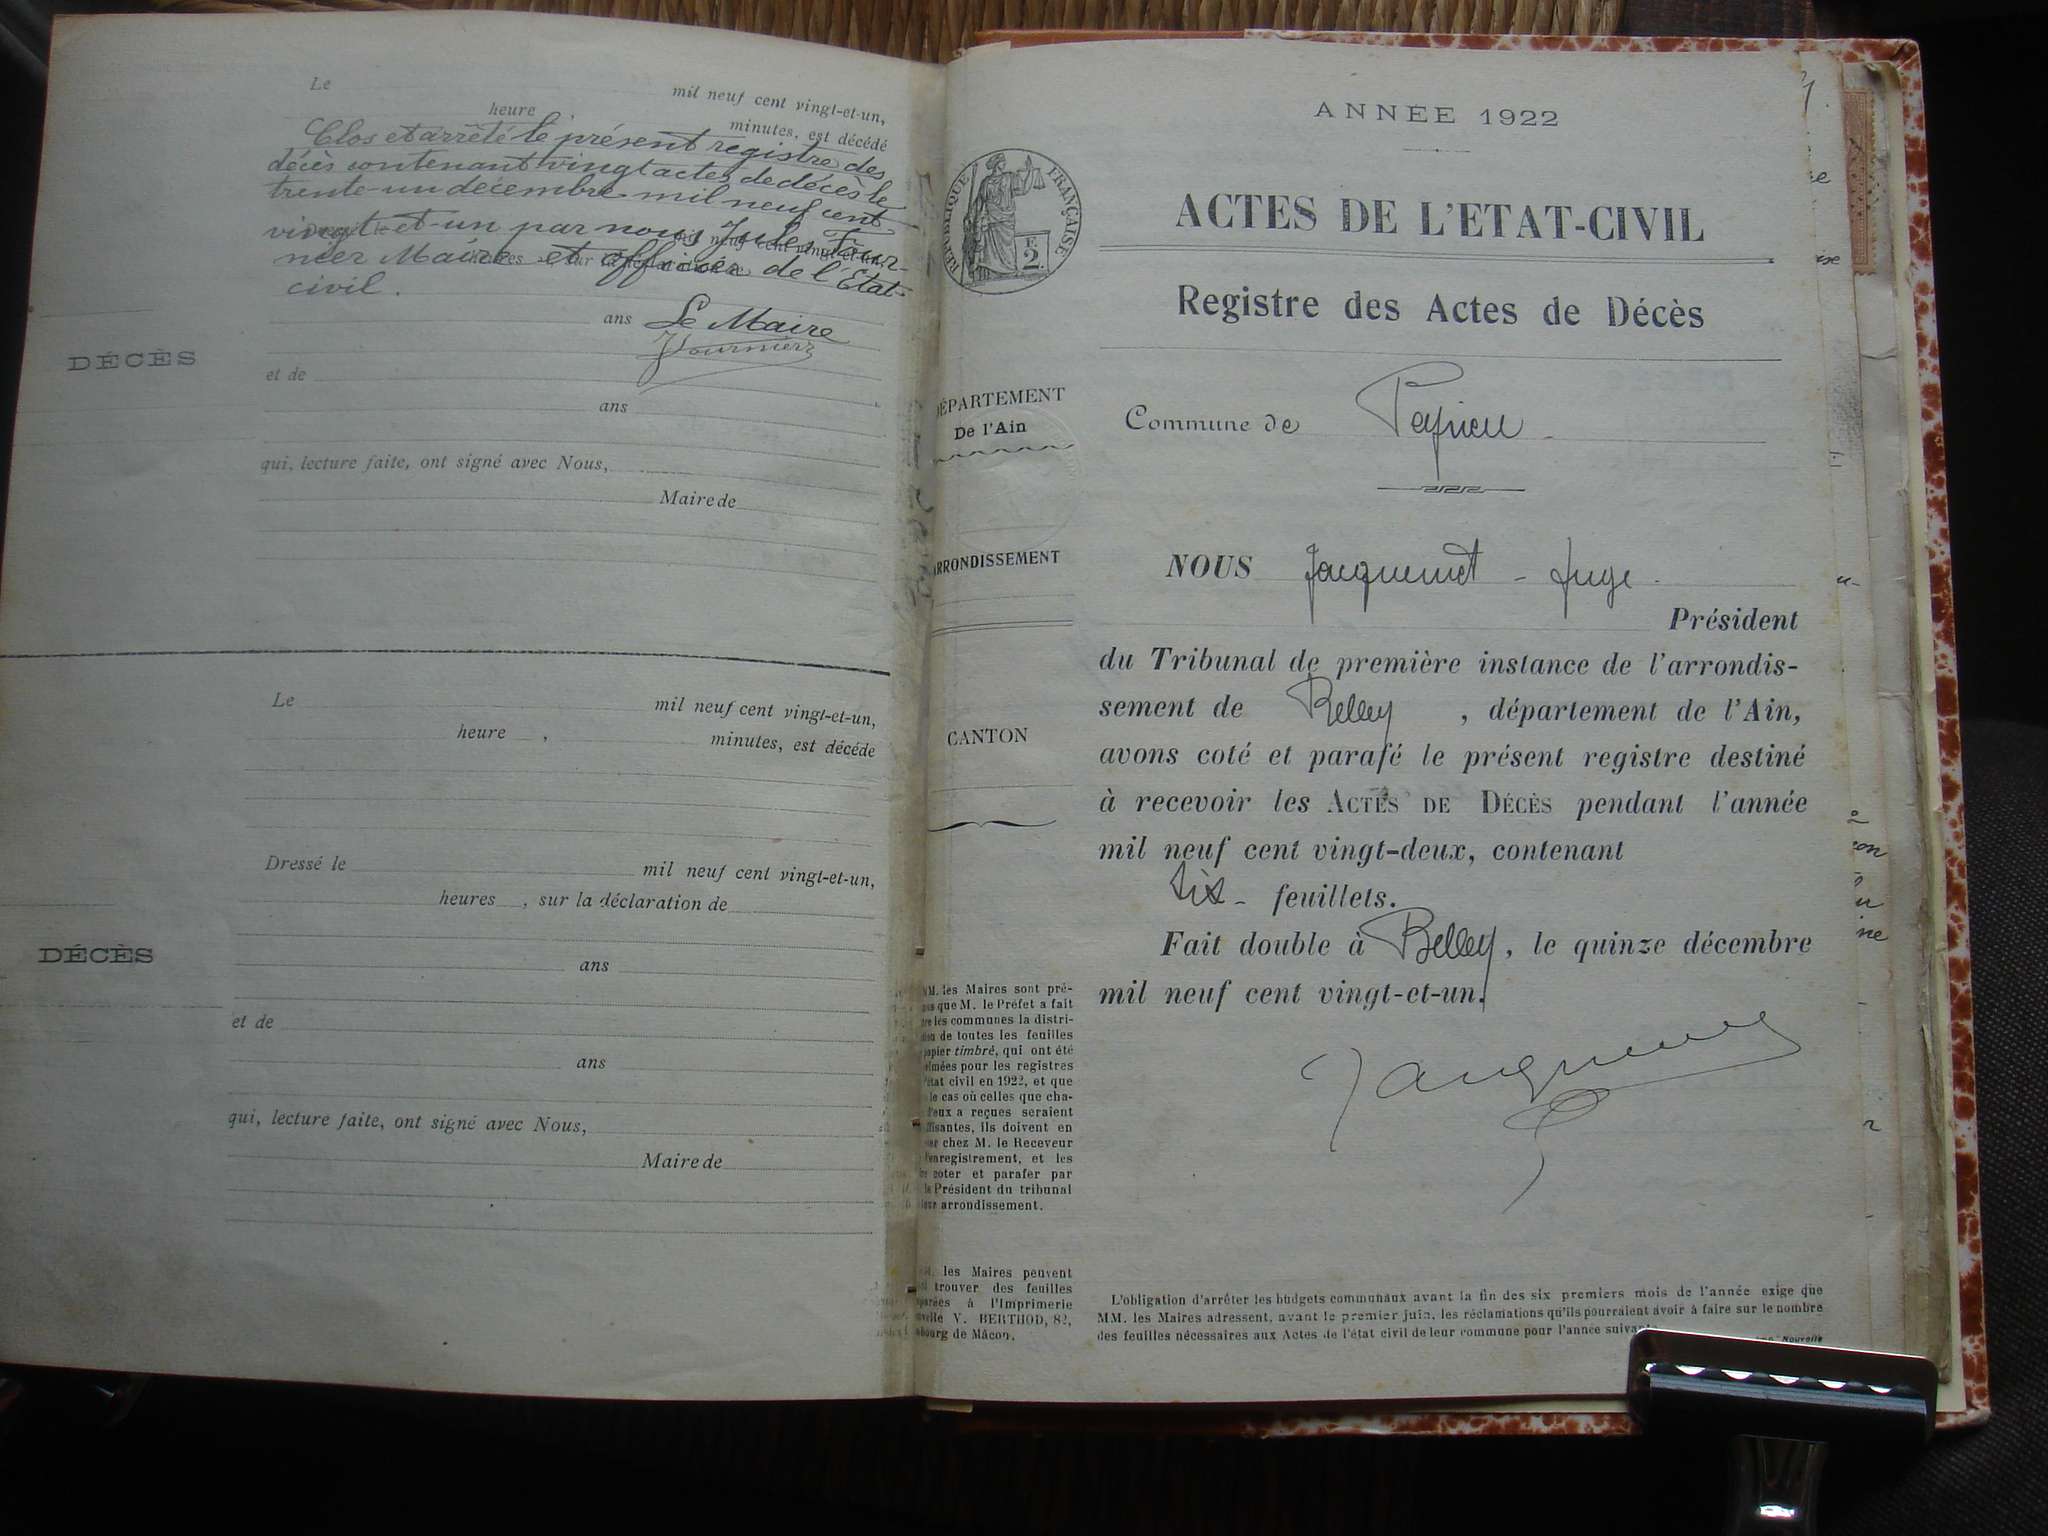 Le mil neuf cent vingt-et-un,
heure minutes, est décédé
Clos et arrêté le présent registre des
décès contenant vingt actes de décès le
trente-un décembre mil neuf cent
vingt-et-un par nous Jules Four-
nier Maire et officier de l'Etat-
civil.
ans Le Maire
Fournier
DÉCÈS
et de
ans
qui, lecture faite, ont signé avec Nous,
Maire de
Le mil neuf cent vingt-et-un,
heure , minutes, est décédé
Dressé le mil neuf cent vingt-et-un,
heures , sur la déclaration de
DÉCÈS
ans
et de
ans
qui, lecture faite, ont signé avec Nous,
Maire de
ANNÉE 1922
RÉPUBLIQUE FRANÇAISE
F.
2.
ACTES DE L'ETAT-CIVIL
Registre des Actes de Décès
DÉPARTEMENT
De l'Ain
Commune de Peyrieu
ARRONDISSEMENT
CANTON
NOUS Jacquemet - Juge
Président
du Tribunal de première instance de l'arrondis-
sement de Belley , département de l'Ain,
avons coté et parafé le présent registre destiné
à recevoir les ACTES DE DÉCÈS pendant l'année
mil neuf cent vingt-deux, contenant
six - feuillets.
Fait double à Belley, le quinze décembre
mil neuf cent vingt-et-un.
MM. les Maires sont pré-
que M. le Préfet a fait
les communes la distri-
de toutes les feuilles
papier timbré, qui ont été
pour les registres
état civil en 1922, et que
le cas où celles que cha-
d'eux a reçues seraient
ils doivent en
chez M. le Receveur
l'enregistrement, et les
coter et parafer par
le Président du tribunal
leur arrondissement.
les Maires peuvent
trouver des feuilles
à l'Imprimerie
V. BERTHOD, 82,
de Mâcon.
L'obligation d'arrêter les budgets communaux avant la fin des six premiers mois de l'année exige que
MM. les Maires adressent, avant le premier juin, les réclamations qu'ils pourraient avoir à faire sur le nombre
des feuilles nécessaires aux Actes de l'état civil de leur commune pour l'année suivante
Nouvelle